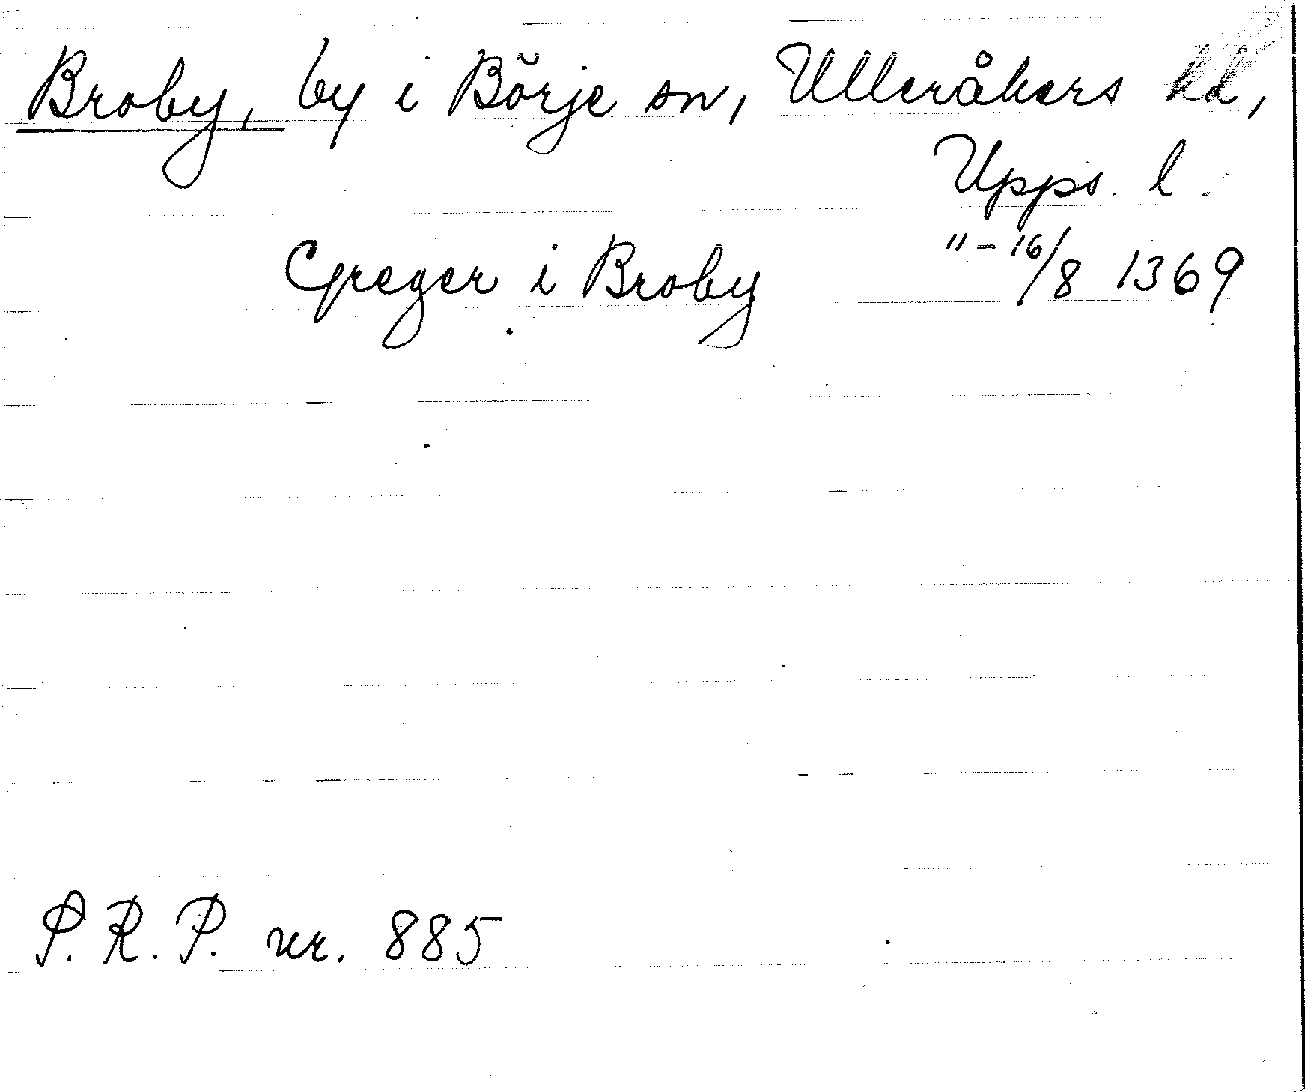 Broby, by i Börje sn, Ulleråkers hd,
Upps. l.
Greger i Broby 11-16/8 1369
S.R.P. nr. 885